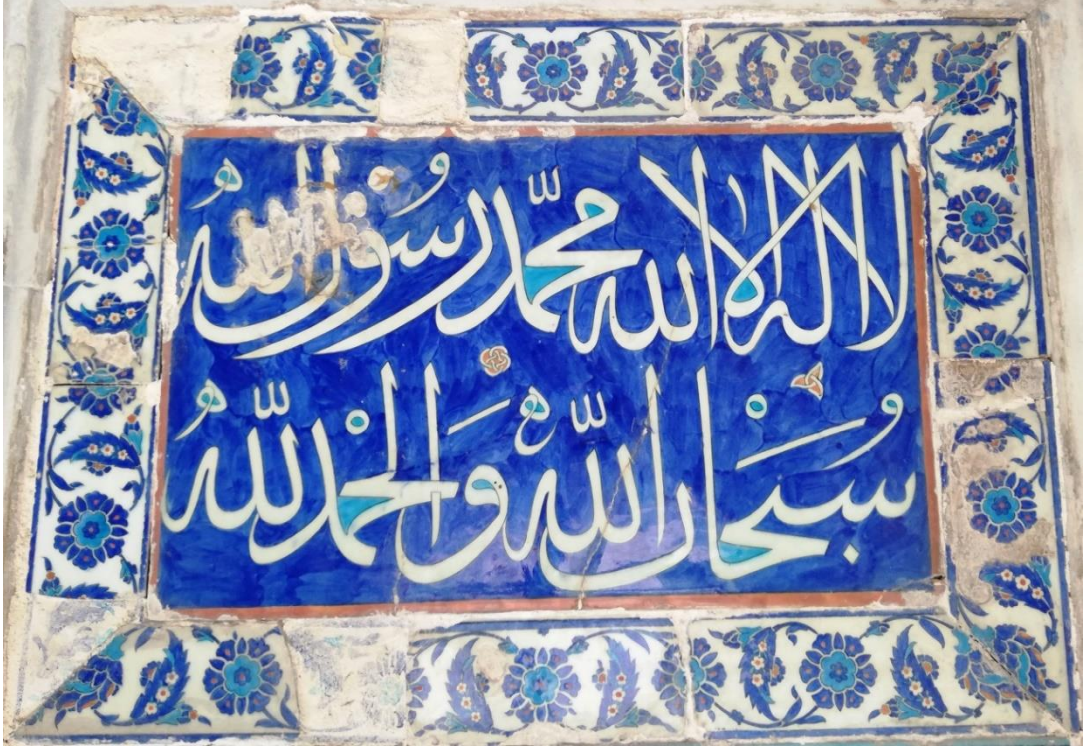 لا اله الا الله محمد رسول الله
سُبْحان الله وَالحْمد لله